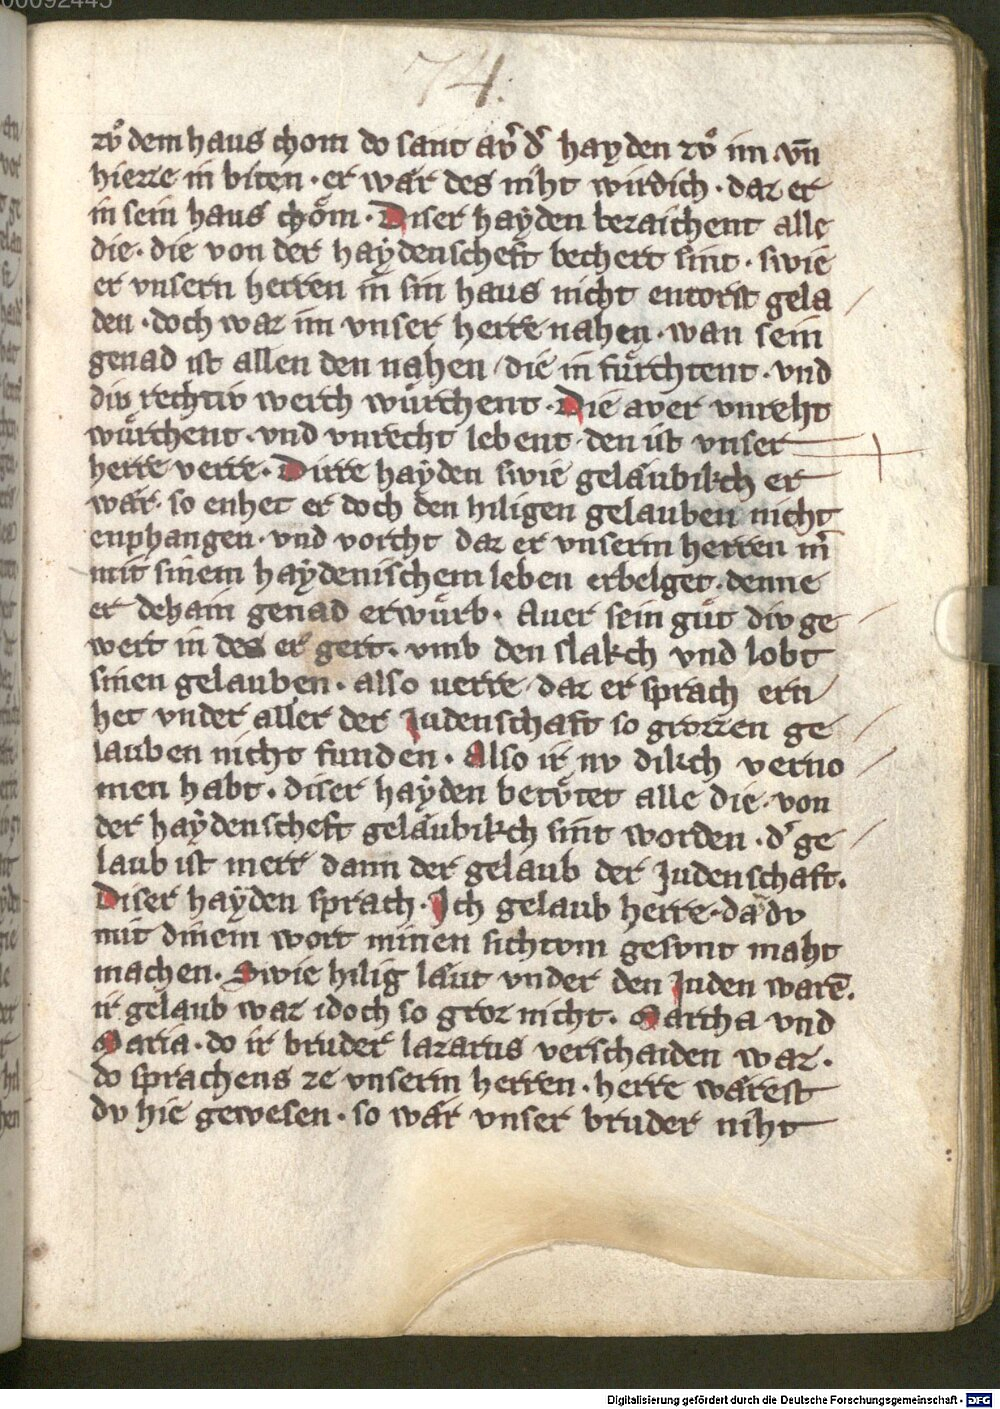 00092445
74.
zvͦ dem haus chom do sant av̓ d̓ hayden zvͦ im vn̄
hiezze in biten · er wár des niht wirdich · daz er
in sein haus choͤm · Diser haÿden bezaichent alle
die · die von der haÿdenscheft bechert sint · swie
er vnsern herren in sin haus nicht entorst gela
den · doch waz im vnser herre nahen · wan sein
genad ist allen den nahen / die in fuͤrchtent · vnd
div rechtiv werch wuͤrchent · Die aver vnreht
wuͤrchent · vnd vnrecht lebent · den ist vnser
herre verre · Dirre haÿden swie geláubikch er
wár · so enhet er doch den hiligen gelauben nicht
enphangen · vnd vorcht daz er vnserm herren in̓
mit sinem haÿdenischem leben erbelget · denne
er dehain genad erwuͤrb · Aver sein guͤt div ge
wert in des er gert · vmb den slakch vnd lobt
sinen gelauben · also verre / daz er sprach ern
het vnder aller der Judenschaft so grozzen ge
lauben nicht funden · Also ir nv dikch verno
men habt · diser haÿden betvͤtet alle die · von
der haÿdenscheft geláubikch sint worden · d̓ ge
laub ist merr dann der gelaub der Judenschaft.
Diser haÿden sprach · Ich gelaub herre · da du
mit dinem wort minen sichtvm gesvnt maht
machen · Swie hilig láut vnder den Juden warē.
ir gelaub waz idoch so groz nicht · Martha vnd
Maria · do ir bruder lazarus verschaiden waz ·
do sprachens ze vnserm herren · herre wárest
dv hie gewesen · so wár vnser bruder niht
Digitalisierung gefördert durch die Deutsche Forschungsgemeinschaft - DFG